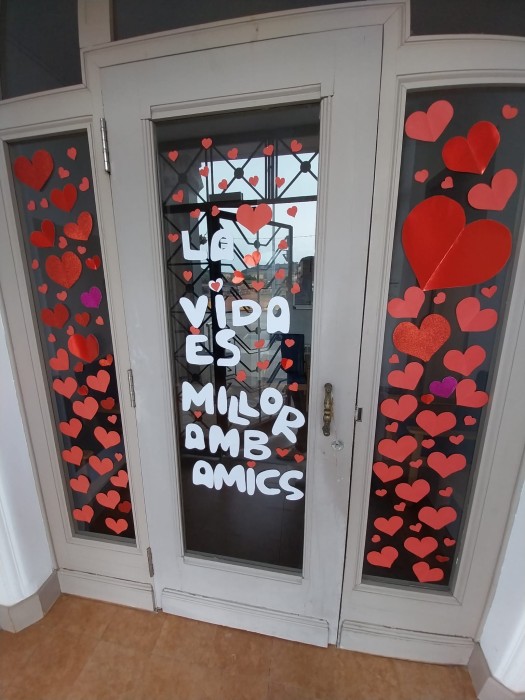 LA
ViDA
ES
MILLOR
AMB
AMICS